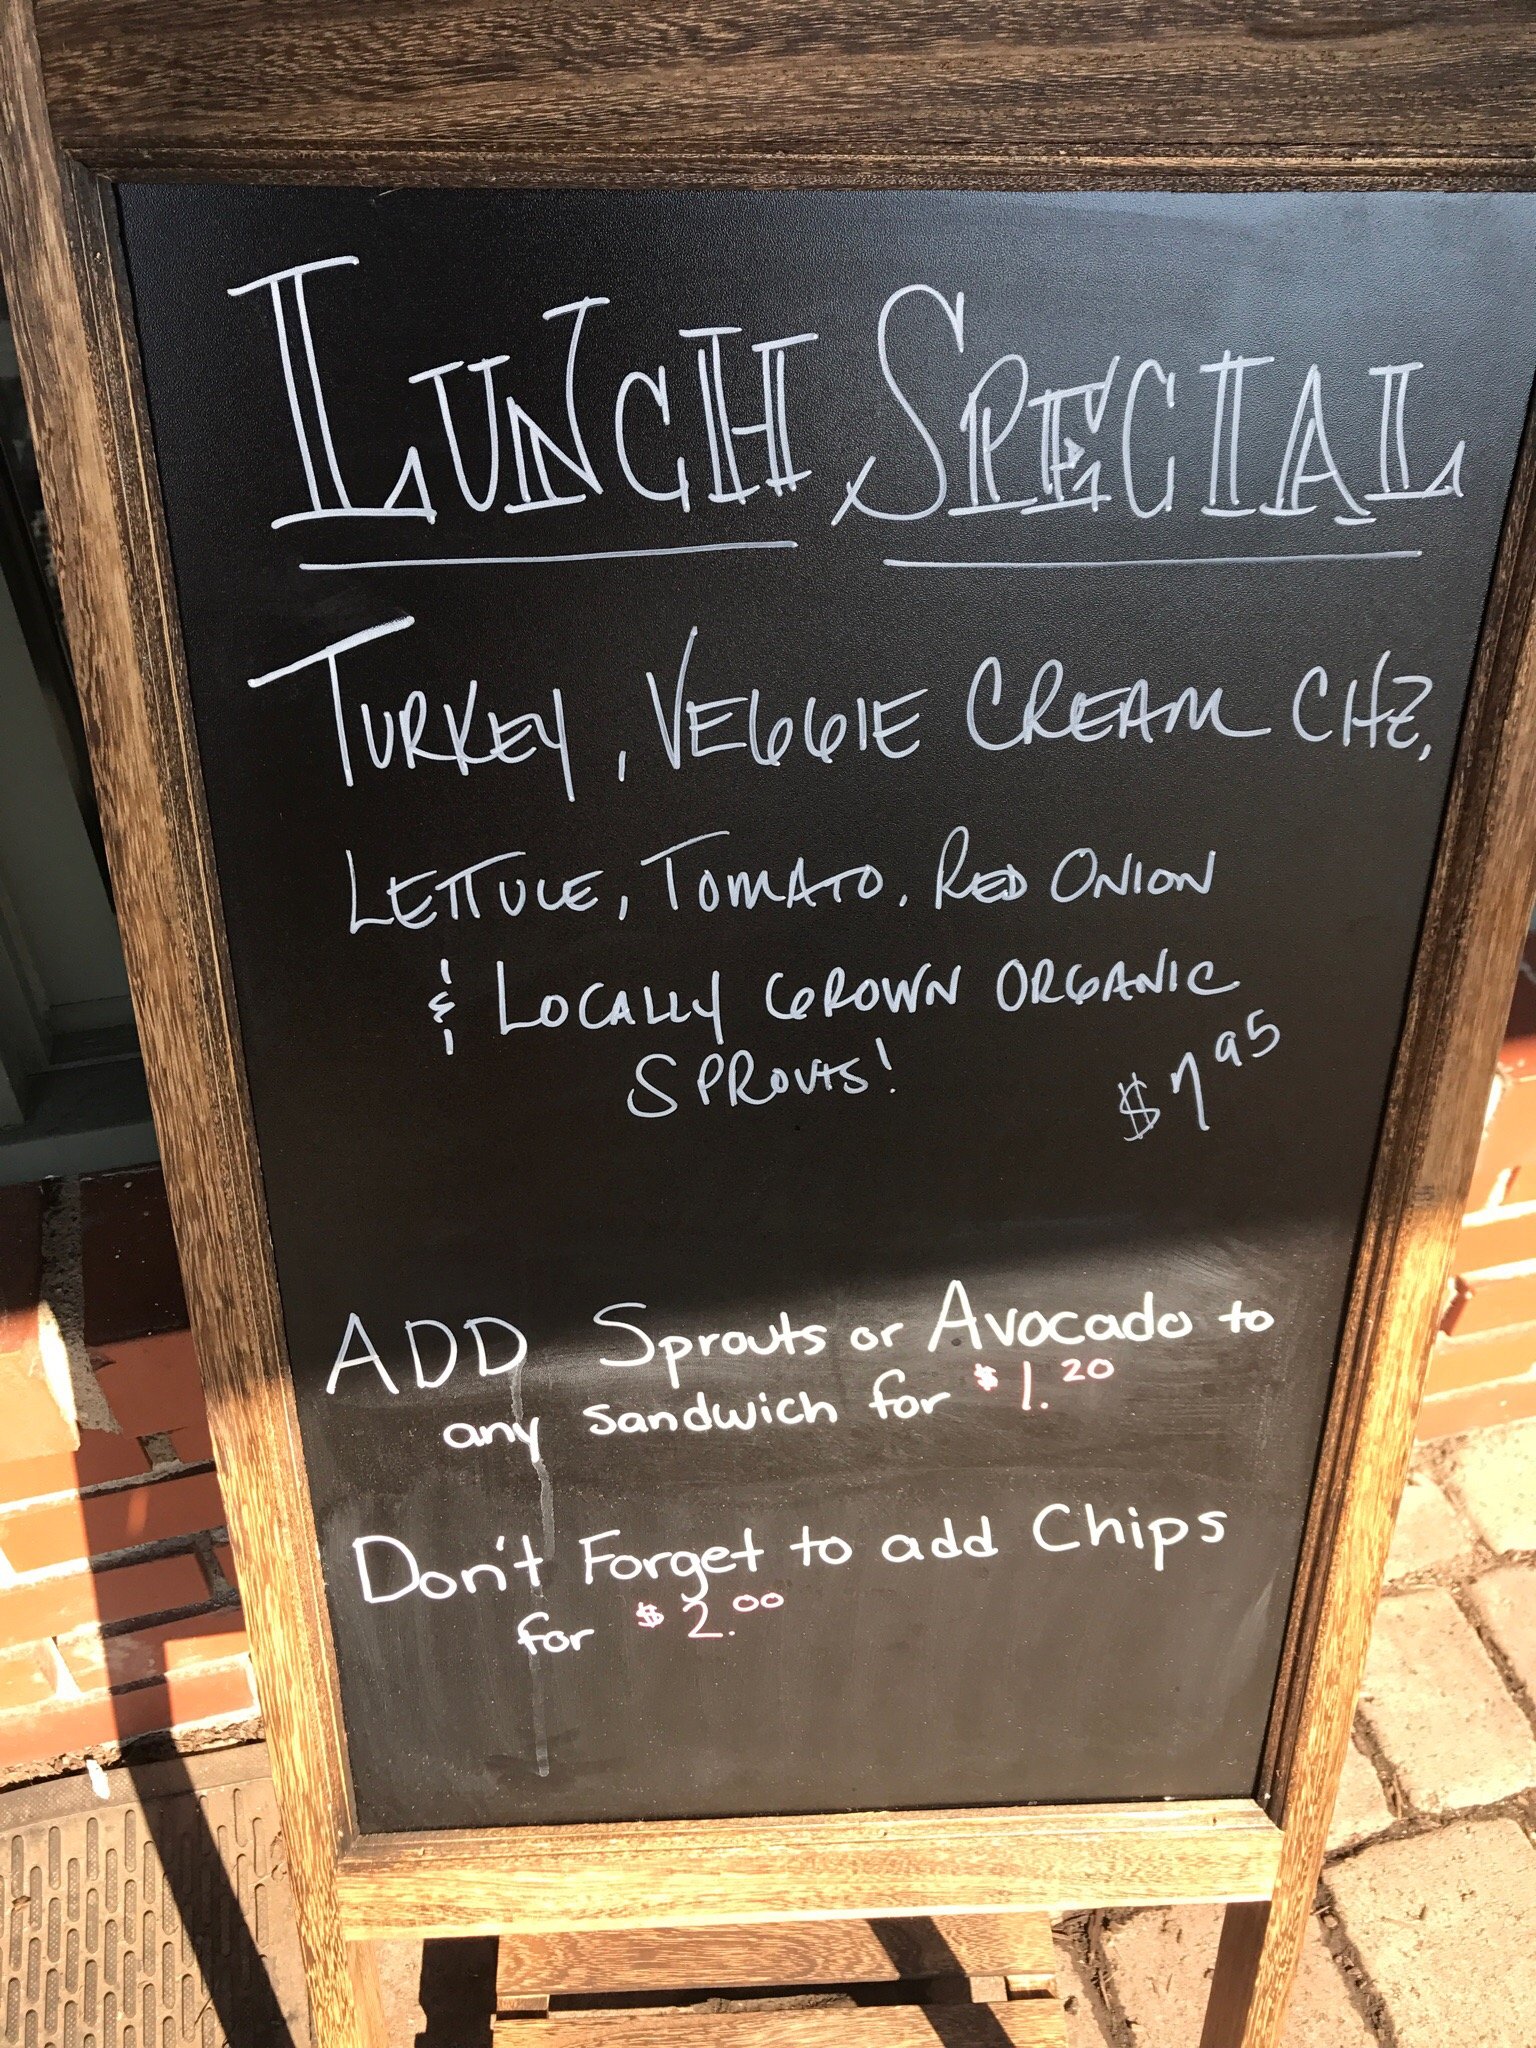 LUNCH SPECIAL
TURKEY, VEGGIE CREAM CHZ,
LETTUCE, TOMATO, RED ONION
& LOCALLY GROWN ORGANIC
SPROUTS!
$7 95
ADD Sprouts or Avocado to
any sandwich for $1.20
Don't Forget to add Chips
for $2.00